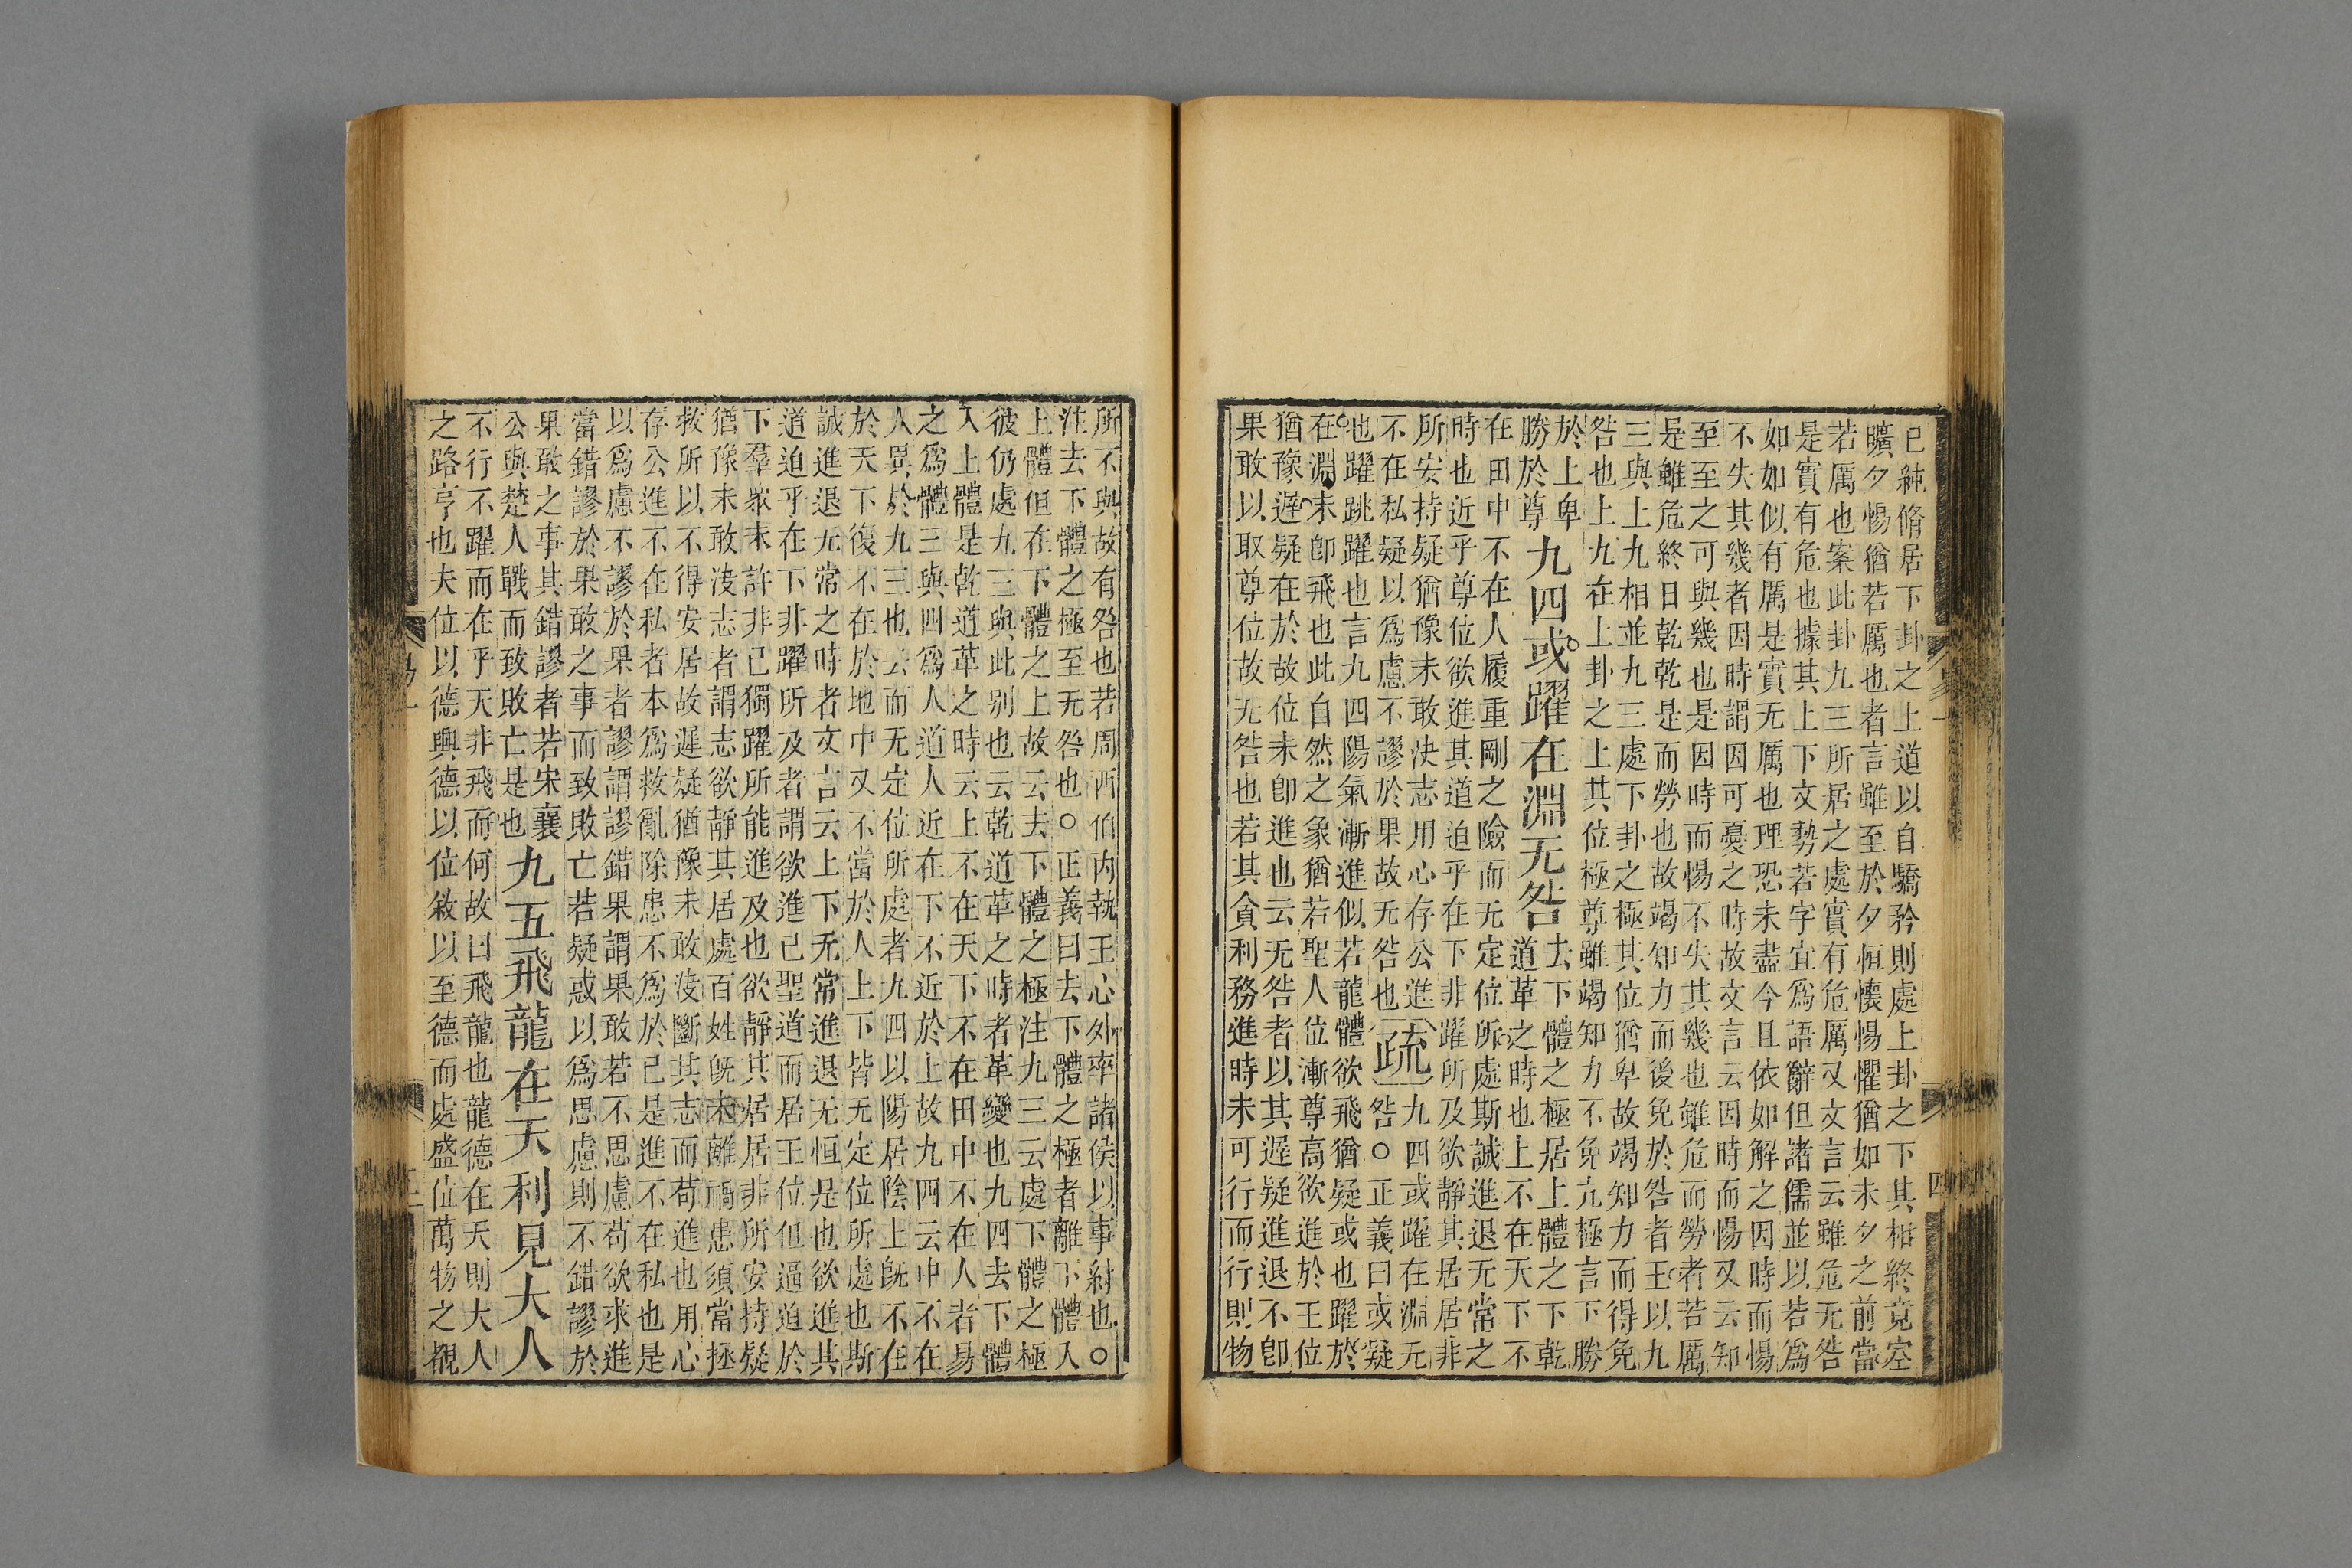 已純脩居下卦之上道以自驕矜則處上卦之下其相終竟空
曠夕惕猶若厲也者言雖至於夕恒懷惕懼猶如未夕之前當
若厲也案此卦九三所居之處實有危厲又文言云雖危无咎
是實有危也據其上下文勢若字宜爲語辭但諸儒並以若爲
如如似有厲是實无厲也理恐未盡今且依如解之因時而惕
不失其幾者因時謂因可憂之時故文言云因時而惕又云知
至至之可與幾也是因時而惕不失其幾也雖危而勞者若厲
是雖危終日乾乾是而勞也故竭知力而後免於咎者王以九
三與上九相並九三處下卦之極其位猶卑故竭知力而得免
咎也上九在上卦之上其位極尊雖竭知力不免亢極言下勝
於上卑
勝於尊
九四或躍在淵无咎
去下體之極居上體之下乾
道革之時也上不在天下不
在田中不在人履重剛之險而无定位所處斯誠進退无常之
時也近乎尊位欲進其道迫乎在下非躍所及欲靜其居居非
所安持疑猶豫未敢決志用心存公進
不在私疑以爲慮不謬於果故无咎也
疏
九四或躍在淵无
咎○正義曰或疑
也躍跳躍也言九四陽氣漸進似若龍體欲飛猶疑或也躍於
在淵未卽飛也此自然之象猶若聖人位漸尊高欲進於王位
猶豫遲疑在於故位未卽進也云无咎者以其遲疑進退不卽
果敢以取尊位故无咎也若其貪利務進時未可行而行則物
所不與故有咎也若周西伯内執王心外率諸侯以事紂也○
注去下體之極至无咎也○正義曰去下體之極者離下體入
上體但在下體之上故云去下體之極注九三云處下體之極
彼仍處九三與此别也云乾道革之時者革變也九四去下體
入上體是乾道革之時云上不在天下不在田中不在人者易
之爲體三與四爲人道人近在下不近於上故九四云中不在
人異於九三也云而无定位所處者九四以陽居陰上旣不在
於天下復不在於地中又不當於人上下皆无定位所處也斯
誠進退无常之時者文言云上下无常進退无恒是也欲進其
道迫乎在下非躍所及者謂欲進己聖道而居王位但逼迫於
下羣衆未許非己獨躍所能進及也欲靜其居居非所安持疑
猶豫未敢決志者謂志欲靜其居處百姓旣未離禍患須當拯
救所以不得安居故遲疑猶豫未敢決斷其志而苟進也用心
存公進不在私者本爲救亂除患不爲於己是進不在私也是
以爲慮不謬於果者謬謂謬錯果謂果敢若不思慮苟欲求進
當錯謬於果敢之事而致敗亡若疑惑以爲思慮則不錯謬於
果敢之事其錯謬者若宋襄
公與楚人戰而致敗亡是也
九五飛龍在天利見大人
不行不躍而在乎天非飛而何故曰飛龍也龍德在天則大人
之路亨也夫位以德興德以位敘以至德而處盛位萬物之覩